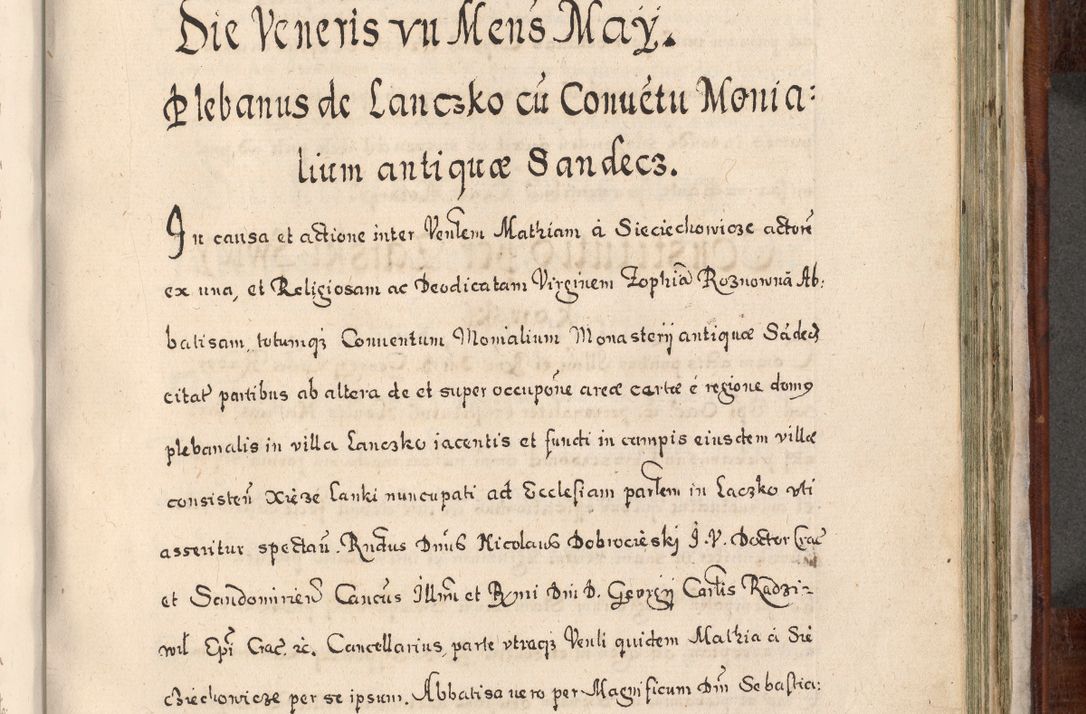 Die Veneris vii Mens̄ Maÿ.
Plebanus de Lanczko cū Conuētu Monia:
lium antiquæ Sandecz.
In causa et actione inter Venl̄em Mathiam à Sieciechowicze actorē
ex una, et Religiosam ac Deodicatam Virginem Zophiā Roznownā Ab:
batisam, totumqꝫ Conuentum Monialium Monasterij antiquæ Sādecz
citat̄ partibus ab altera de et super occupōne areæ cartæ è regione domꝰ
plebanalis in villa Lanczko iacentis et fundi in campis eiusdem villæ
consisten̄ Xięze Lanki nuncupati ad Ecclesiam parl̄em in Laczko vti
asseritur spectan̄. Rndus Dnūs Nicolaus Dobrocięski J. V. Doctor Crac̄
et Sandomirien̄ Cancūs Illm̄i et Rymi Dni D. Georgij Carl̄is Radzi-
wił Ep̄i Crac̄. ꝛc. Cancellarius, parte vtraqꝫ Venli quidem Mathia à Sie
cziechowicze per se ipsum. Abbatisa uero per Magnificum Dn̄m Sebastia: